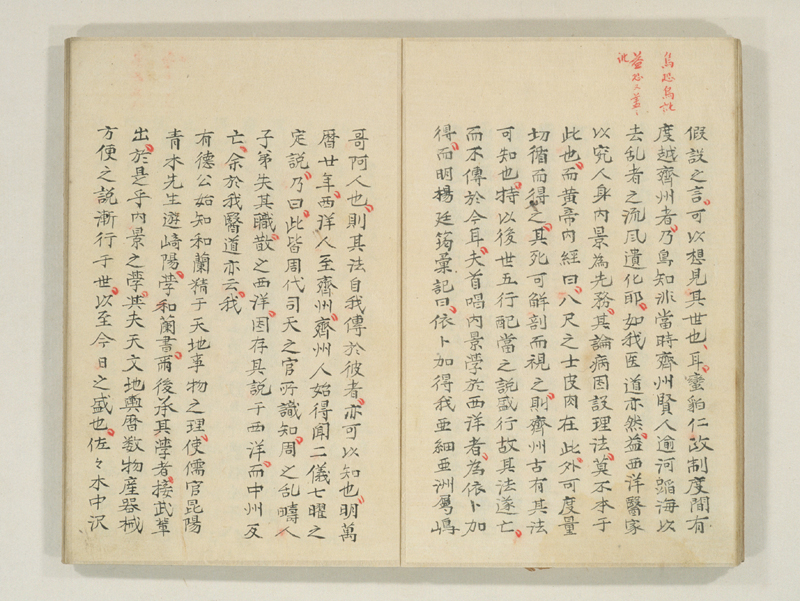 烏恐烏訛
益恐又蓋
訛
假設之言可以想見其世也耳蜜豹仁政制度間有
度越齊州者乃烏知非當時齊州賢人逾河蹈海以
去乱者之流風遺化耶如我医道亦然益西洋醫家
以究人身内景為先務其論病因設理法莫不本于
此也而黄帝内經曰八尺之士皮肉在此外可度量
切循而得之其死可解剖而視之則齊州古有其法
可知也特以後世五行配當之説盛行故其法遂亡
而不傳於今耳夫首唱内景學於西洋者為依卜加
得而明楊廷筠彙記曰依卜加得我亜細亜洲厲嶋
哥阿人也則其法自我傳於彼者亦可以知也明萬
暦廿年西洋人至齊州齊州人始得聞二儀七曜之
定説乃曰此皆周代司天之官所識知周之乱疇人
子弟失其職散之西洋因存其説于西洋而中州反
亡余於我醫道亦云我
有德公始知和蘭精于天地事物之理使儒官昆陽
青木先生遊崎陽學和蘭書爾後承其學者接武輩
出於是乎内景之學其夫天文地輿暦数物産器械
方便之説漸行于世以至今日之盛也佐々木中沢